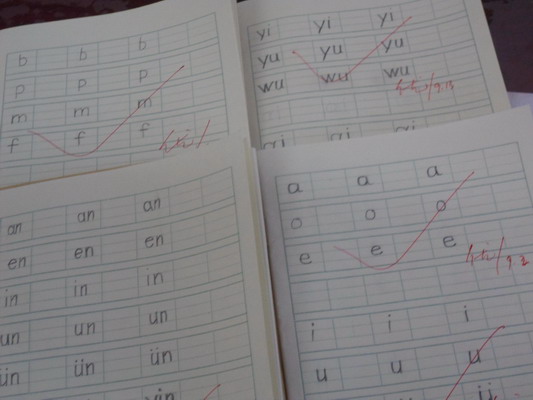 b b b
p p p
m m m
f f f
yi yi yi
yu yu yu
wu wu wu
an an an
en en en
in in in
un un un
ün ün ün
a a a
o o o
e e e
i i i
u u u